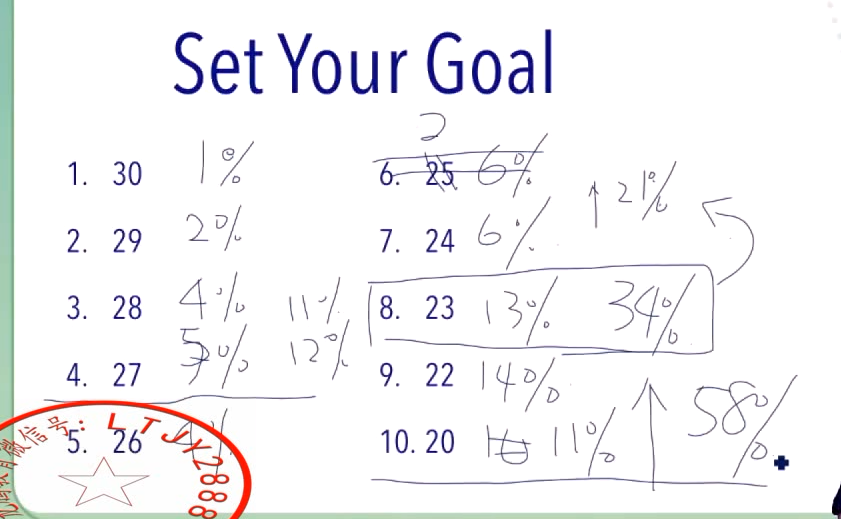 Set Your Goal
1. 30 1%
2. 29 2%
3. 28 4% 11%
4. 27 5% 12%
5. 26
2
6. 25 6%
7. 24 6% ↑21%
8. 23 13% 34%
9. 22 14%
10. 20 11% ↑ 58%
微信号: LTJY2888